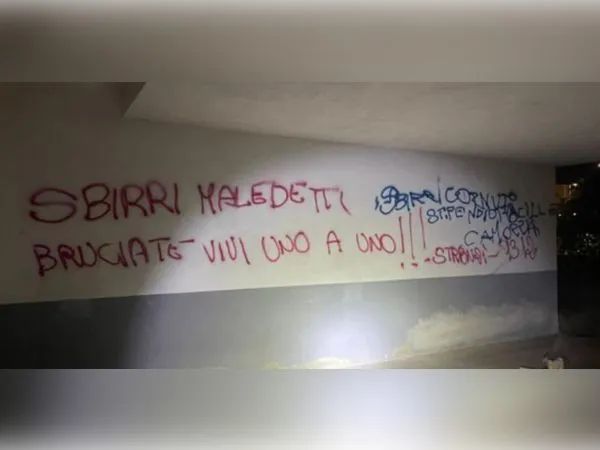 SBIRRI MALEDETTI
BRUCIATE VIVI UNO A UNO!!!
SBIRRI CORNUTO
STIPENDIO
CAMORRA